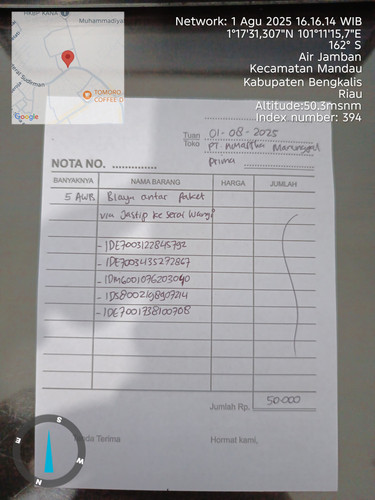 HKBP KANA
Muhammadiyah
TOMORO
COFFEE D
Google
Network: 1 Agu 2025 16.16.14 WIB
1°17'31,307"N 101°11'15,7"E
162° S
Air Jamban
Kecamatan Mandau
Kabupaten Bengkalis
Riau
Altitude:50.3msnm
Index number: 394
Tuan 01-08-2025
Toko PT.
Prima
NOTA NO.
BANYAKNYA NAMA BARANG HARGA JUMLAH
5 AWB Biaya antar paket
via Jastip ke Serai Wangi
- IDE7003122845792
- IDE7003435272867
- IDM6001076203040
- IDS8002198907214
- IDE7001738100708
Jumlah Rp. 50.000
Tanda Terima Hormat kami,
S
E
W
N